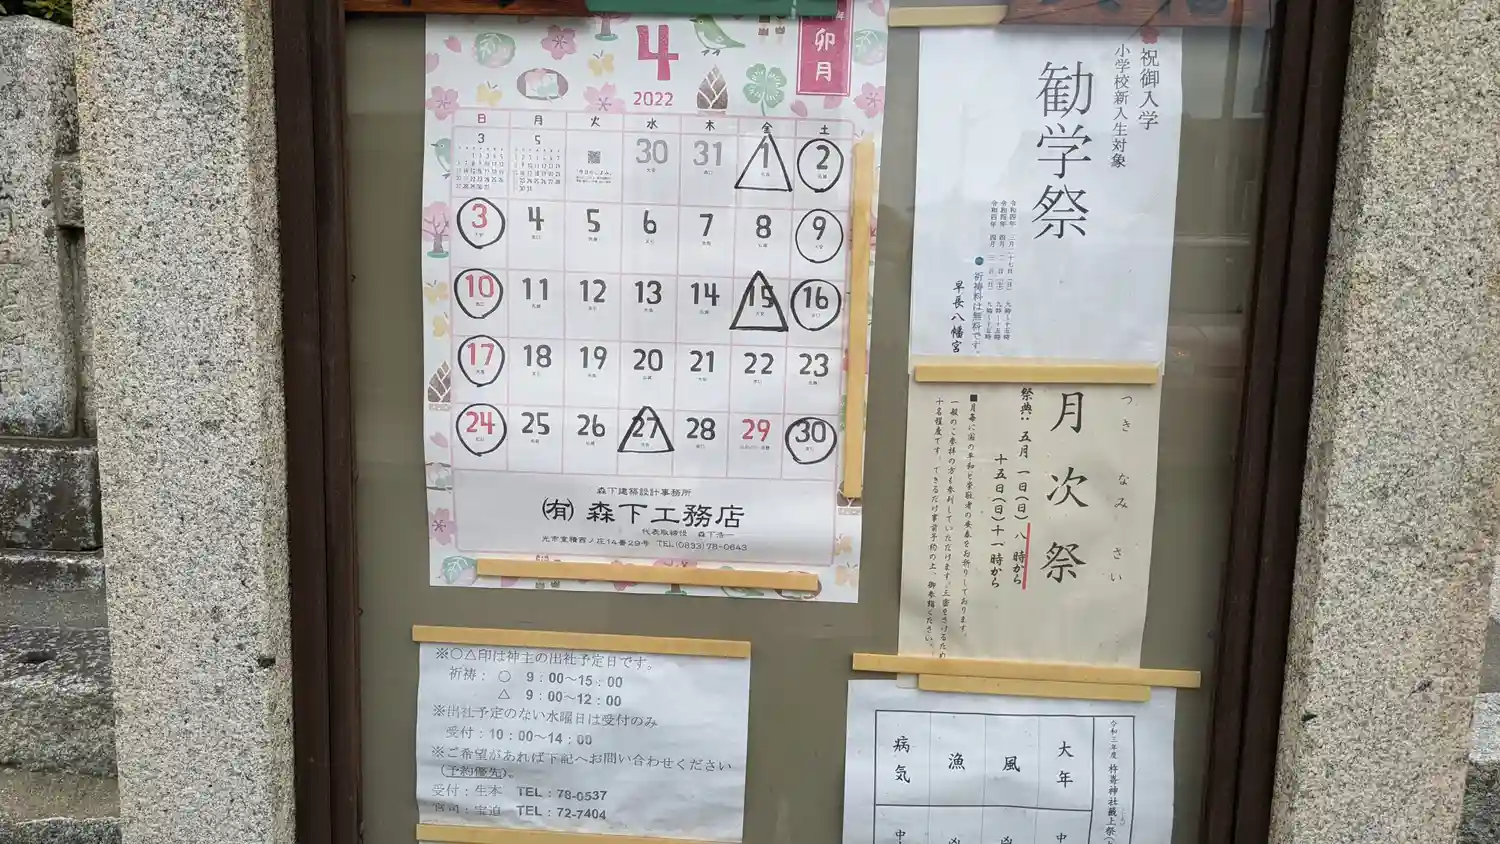 4
2022
卯月
日 月 火 水 木 金 土
3 5 30 31 1 2
3 4 5 6 7 8 9
10 11 12 13 14 15 16
17 18 19 20 21 22 23
24 25 26 27 28 29 30
森下建築設計事務所
㈲ 森下工務店
代表取締役 森下浩一
光市室積西ノ庄14番29号 TEL(0833)78-0643
祝御入学
小学校新入生対象
勧学祭
令和四年 三月二十七日(日) 九時~十五時
令和四年 四月 二日(土) 九時~十五時
令和四年 四月 三日(日) 九時~十五時
●祈祷料は無料です。
早長八幡宮
つきなみさい
月次祭
祭典: 五月 一日(日)八時から
十五日(日)十一時から
■月毎に国の平和と崇敬者の安泰をお祈りしております。
一般のご参拝の方も参列していただけます。三密をさけるため
十名程度です。できるだけ事前予約の上、御参拝ください。
※○△印は神主の出社予定日です。
祈祷: ○ 9:00~15:00
△ 9:00~12:00
※出社予定のない水曜日は受付のみ
受付:10:00~14:00
※ご希望があれば下記へお問い合わせください
(予約優先)。
受付:生本 TEL:78-0537
宮司:宝迫 TEL:72-7404
令和三年度 杵崎神社蔵上祭
大年
風
漁
病気
中
凶
凶
中